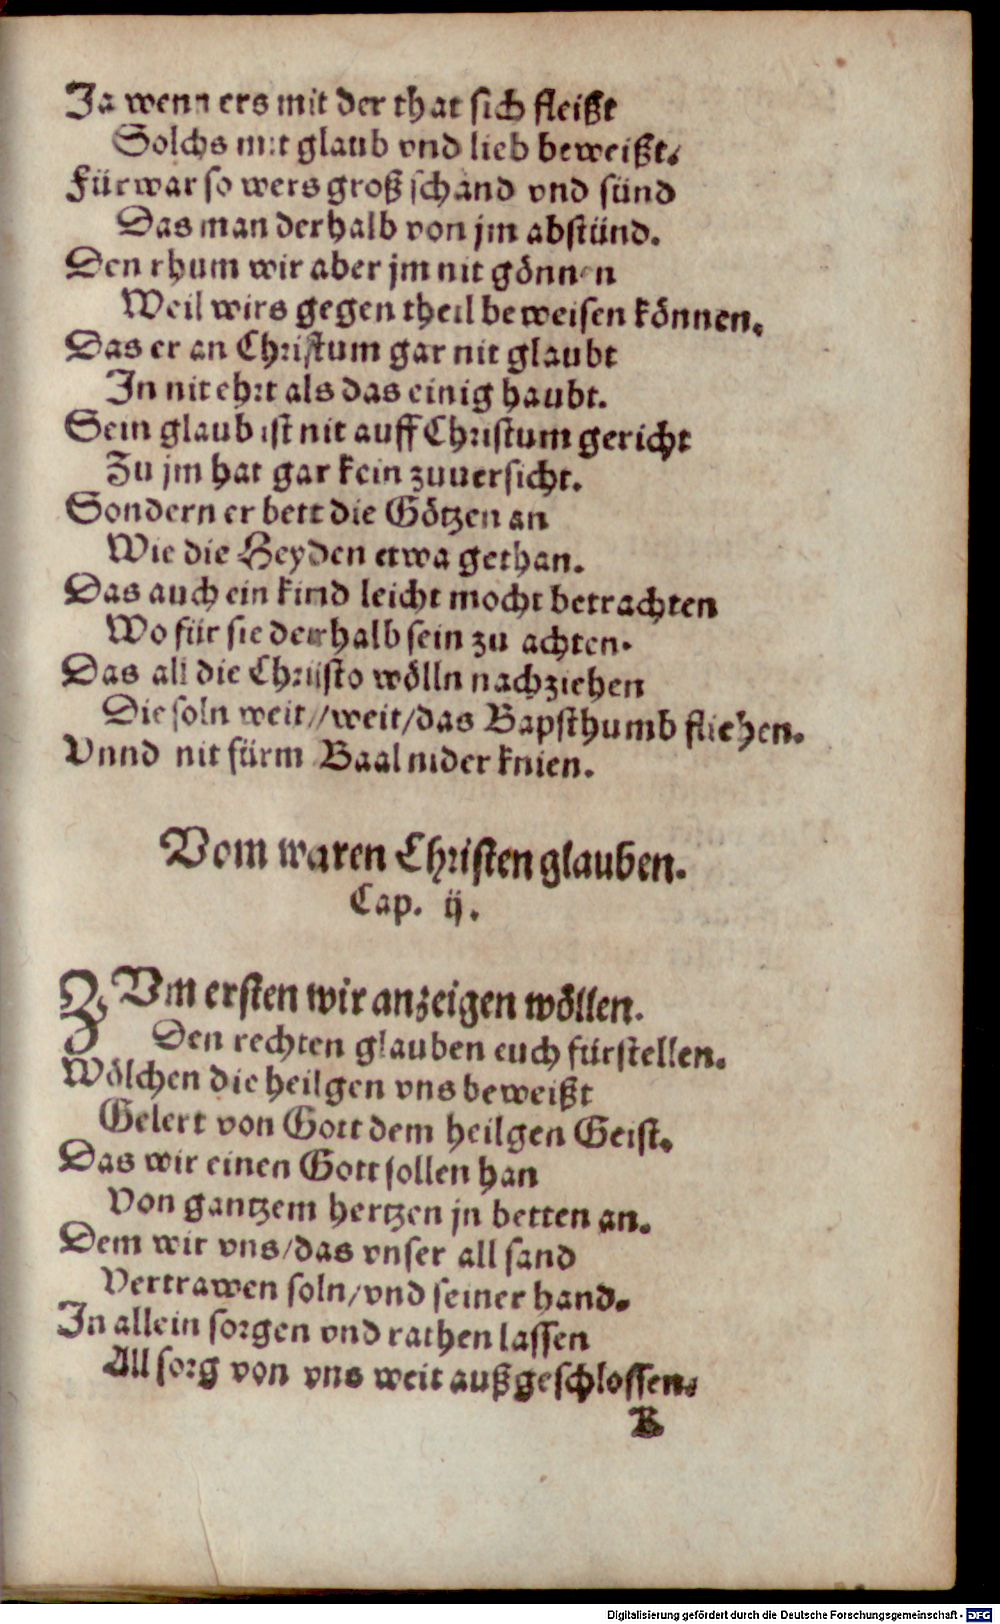 Ja wenn ers mit der that sich fleißt
Solchs mit glaub vnd lieb beweißt.
Fürwar so wers groß schand vnd sünd
Das man derhalb von jm abstünd.
Den rhum wir aber jm nit gönnen
Weil wirs gegen theil beweisen können.
Das er an Christum gar nit glaubt
In nit ehrt als das einig haubt.
Sein glaub ist nit auff Christum gericht
Zu jm hat gar kein zuuersicht.
Sondern er bett die Götzen an
Wie die Heyden etwa gethan.
Das auch ein kind leicht mocht betrachten
Wo für sie derhalb sein zu achten.
Das all die Christo wölln nachziehen
Die soln weit//weit/das Bapsthumb fliehen.
Vnnd nit fürm Baal nider knien.
Vom waren Christen glauben.
Cap. ij.
ZVm ersten wir anzeigen wöllen.
Den rechten glauben euch fürstellen.
Wölchen die heilgen vns beweißt
Gelert von Gott dem heilgen Geist.
Das wir einen Gott sollen han
Von gantzem hertzen jn betten an.
Dem wir vns/das vnser all sand
Vertrawen soln/vnd seiner hand.
In allein sorgen vnd rathen lassen
All sorg von vns weit außgeschlossen.
B
Digitalisierung gefördert durch die Deutsche Forschungsgemeinschaft - DFG